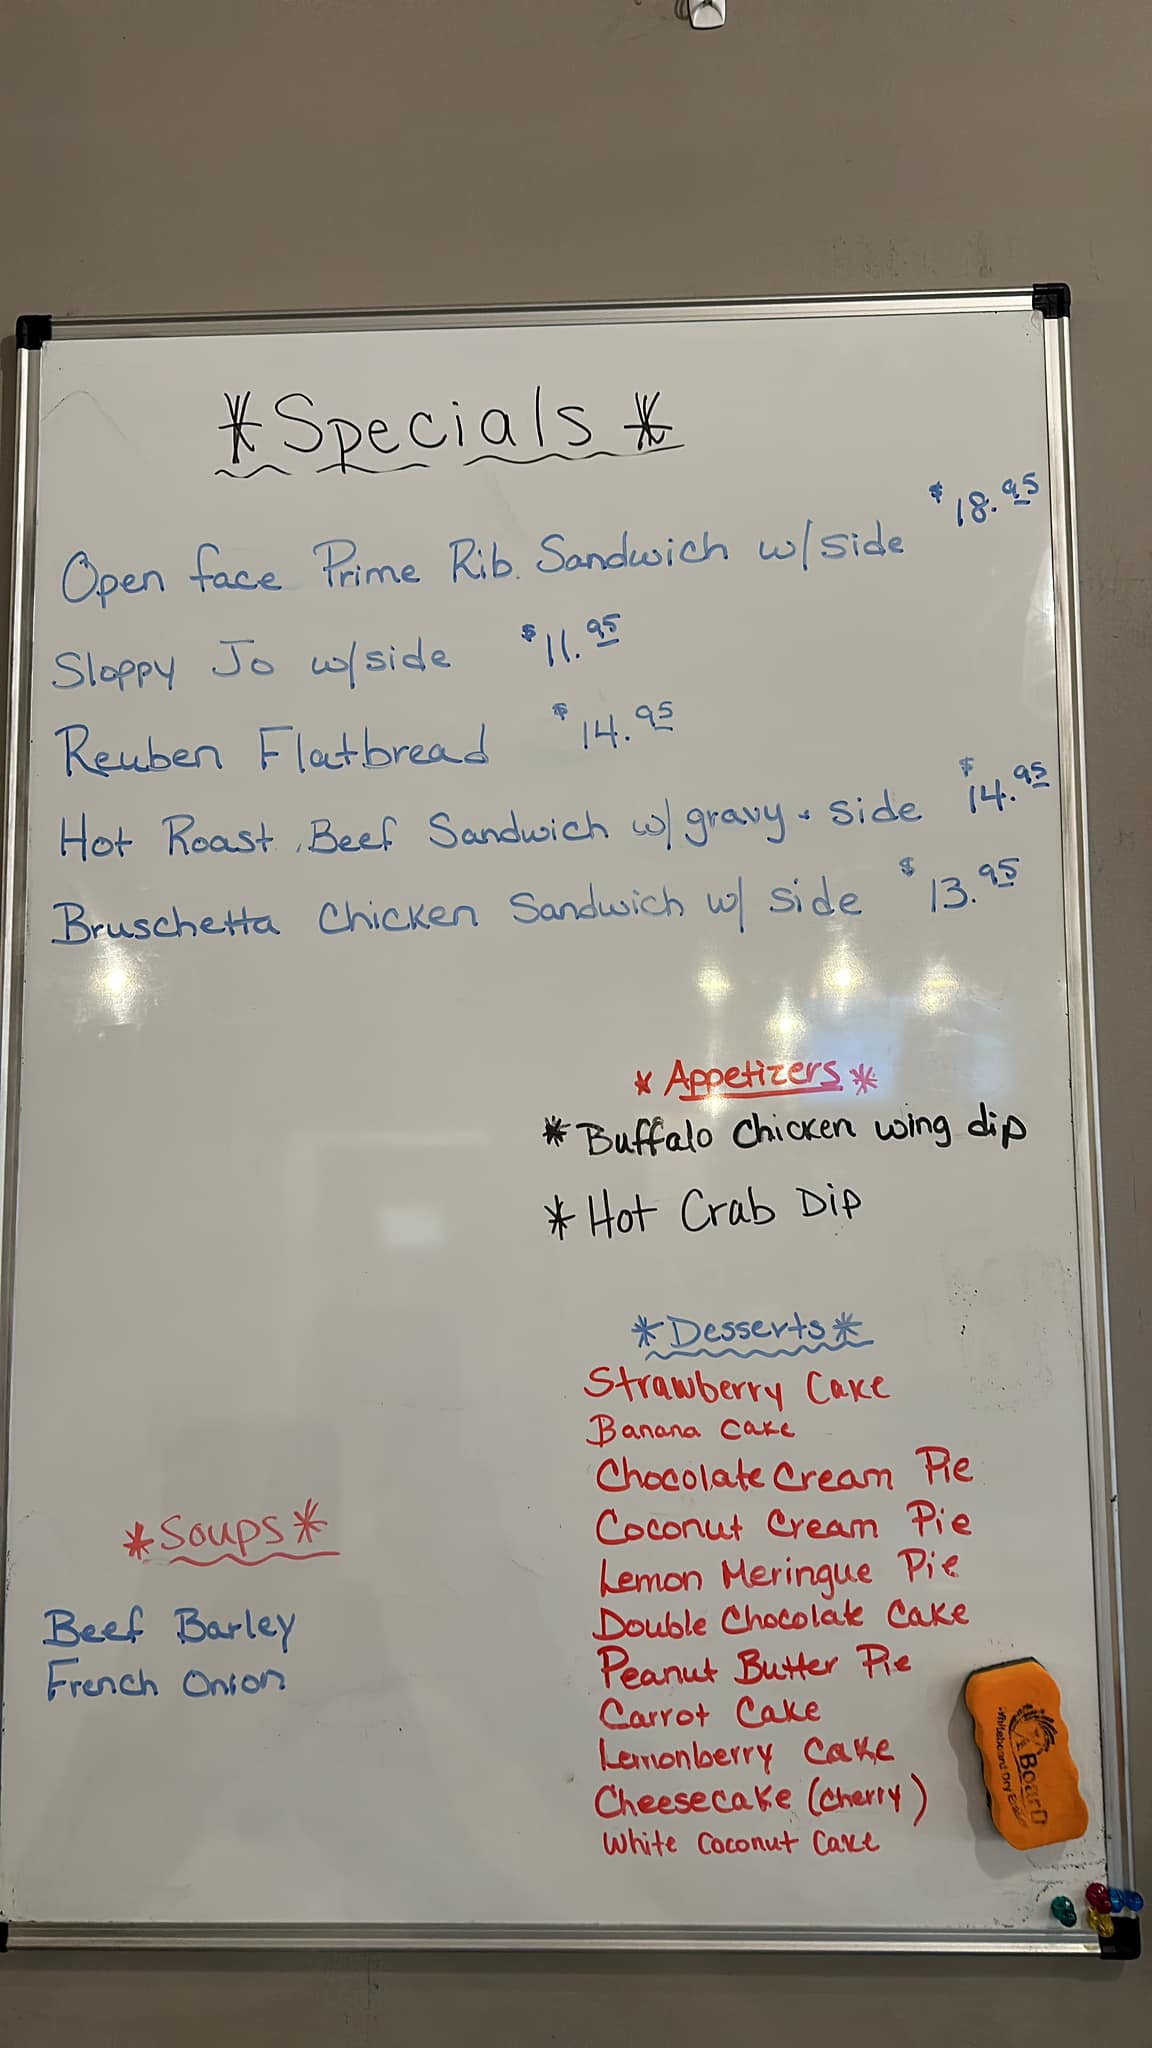 *Specials*
Open face Prime Rib Sandwich w/side $18.95
Sloppy Jo w/side $11.95
Reuben Flatbread $14.95
Hot Roast Beef Sandwich w/gravy + side $14.95
Bruschetta Chicken Sandwich w/ side $13.95
* Appetizers *
* Buffalo Chicken wing dip
* Hot Crab Dip
*Desserts*
Strawberry Cake
Banana Cake
Chocolate Cream Pie
Coconut Cream Pie
Lemon Meringue Pie
Double Chocolate Cake
Peanut Butter Pie
Carrot Cake
Lemonberry Cake
Cheesecake (Cherry)
White Coconut Cake
*Soups*
Beef Barley
French Onion
BoarD
Whiteboard Dry